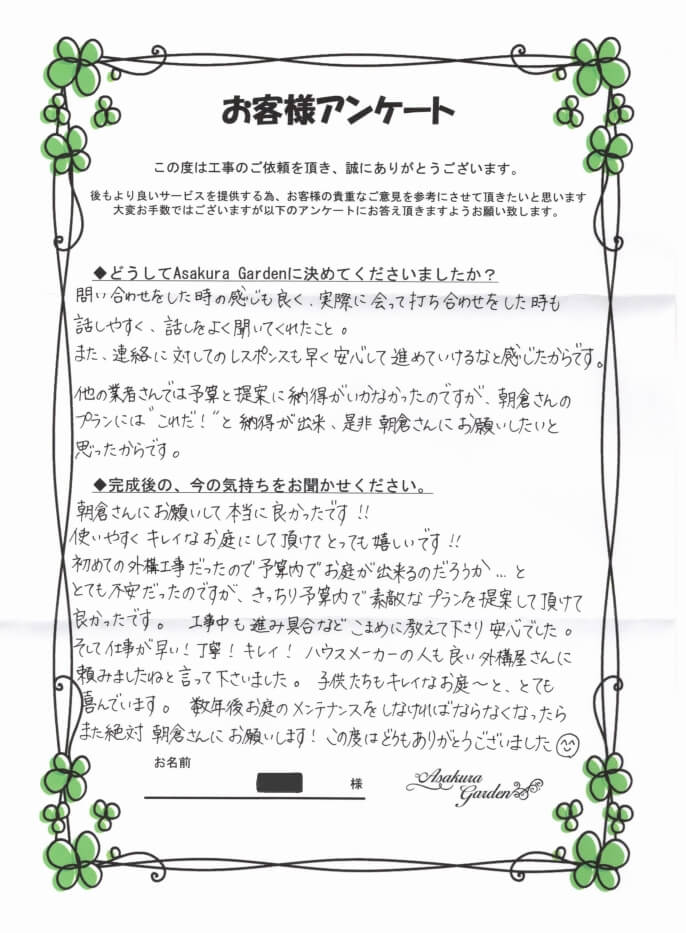 お客様アンケート
この度は工事のご依頼を頂き、誠にありがとうございます。
後もより良いサービスを提供する為、お客様の貴重なご意見を参考にさせて頂きたいと思います
大変お手数ではございますが以下のアンケートにお答え頂きますようお願い致します。
◆どうしてAsakura Gardenに決めてくださいましたか？
問い合わせをした時の感じも良く、実際に会って打ち合わせをした時も
話しやすく、話しをよく聞いてくれたこと。
また、連絡に対してのレスポンスも早く安心して進めていけるなと感じたからです。
他の業者さんでは予算と提案に納得がいかなかったのですが、朝倉さんの
プランには"これだ！"と納得が出来、是非朝倉さんにお願いしたいと
思ったからです。
◆完成後の、今の気持ちをお聞かせください。
朝倉さんにお願いして本当に良かったです!!
使いやすくキレイなお庭にして頂けてとっても嬉しいです!!
初めての外構工事だったので予算内でお庭が出来るのだろうか…と
とても不安だったのですが、きっちり予算内で素敵なプランを提案して頂けて
良かったです。 工事中も進み具合などこまめに教えて下さり安心でした。
そして仕事が早い！丁寧！キレイ！ ハウスメーカーの人も良い外構屋さんに
頼みましたねと言って下さいました。 子供たちもキレイなお庭〜と、とても
喜んでいます。 数年後お庭のメンテナンスをしなければならなくなったら
また絶対朝倉さんにお願いします！この度はどうもありがとうございました
お名前
様
Asakura
Garden